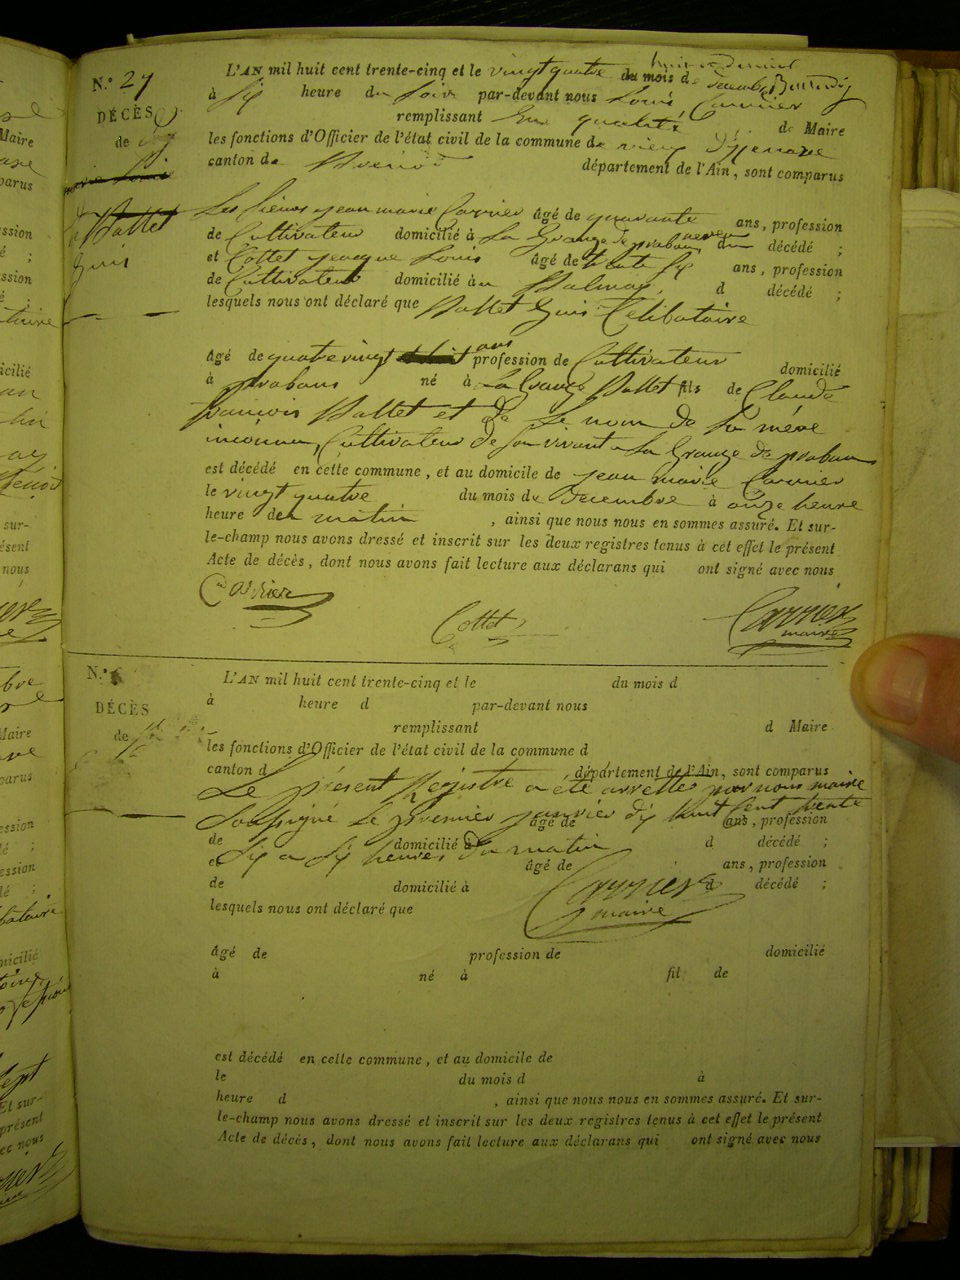 N.º 27
DÉCÈS
de
Vallet
L'AN mil huit cent trente-cinq et le vingt quatre du mois de
à Six heure du Soir par-devant nous Louis Carrier
remplissant en qualité de Maire
les fonctions d'Officier de l'état civil de la commune de vieu d'Izenave
canton de département de l'Ain, sont comparus
Les Sieurs jean marie Carrier âgé de quarante ans, profession
de Cultivateur domicilié à La Grange de praban neveu du décédé ;
et Cottet jacque Louis âgé de trente Six ans, profession
de Cultivateur domicilié au d décédé ;
lesquels nous ont déclaré que Vallet Celibataire
âgé de quatre vingt ans profession de Cultivateur domicilié
à prabans né à La Grange Vallet fils de Claude
françois Vallet et de Le nom de Sa mére
inconnu, Cultivateur de Son vivant a La Grange de praban
est décédé en cette commune, et au domicile de jean marie Carrier
le vingt quatre du mois de Decembre à onze heure
heure du matin , ainsi que nous nous en sommes assuré. Et sur-
le-champ nous avons dressé et inscrit sur les deux registres tenus à cet effet le présent
Acte de décès, dont nous avons fait lecture aux déclarans qui ont signé avec nous
Carrier Cottet Carrier
maire
N.º
DÉCÈS
de
L'AN mil huit cent trente-cinq et le du mois d
à heure d par-devant nous
remplissant d Maire
les fonctions d'Officier de l'état civil de la commune d
canton d département de l'Ain, sont comparus
Le présent Registre a été arretté par nous maire
Soussigné Le premier janvier dix huit Cent trente
âgé de ans, profession
de domicilié à d décédé ;
Six a Six heures du matin
et âgé de ans, profession
de domicilié à d décédé ;
Carrier
maire
lesquels nous ont déclaré que
âgé de profession de domicilié
à né à fil de
est décédé en cette commune, et au domicile de
le du mois d à
heure d , ainsi que nous nous en sommes assuré. Et sur-
le-champ nous avons dressé et inscrit sur les deux registres tenus à cet effet le présent
Acte de décès, dont nous avons fait lecture aux déclarans qui ont signé avec nous